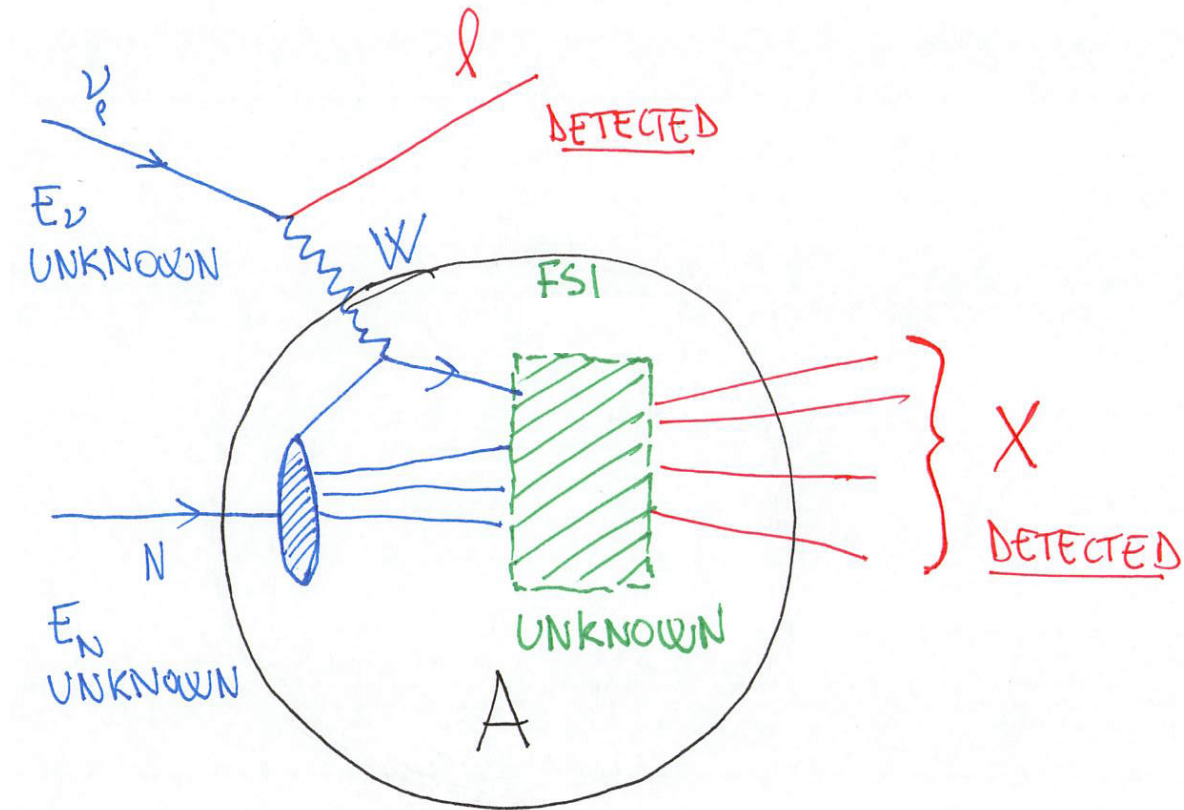 ℓ
ν_ℓ
DETECTED
E_ν
UNKNOWN
W
FSI
X
DETECTED
N
E_N
UNKNOWN
UNKNOWN
A